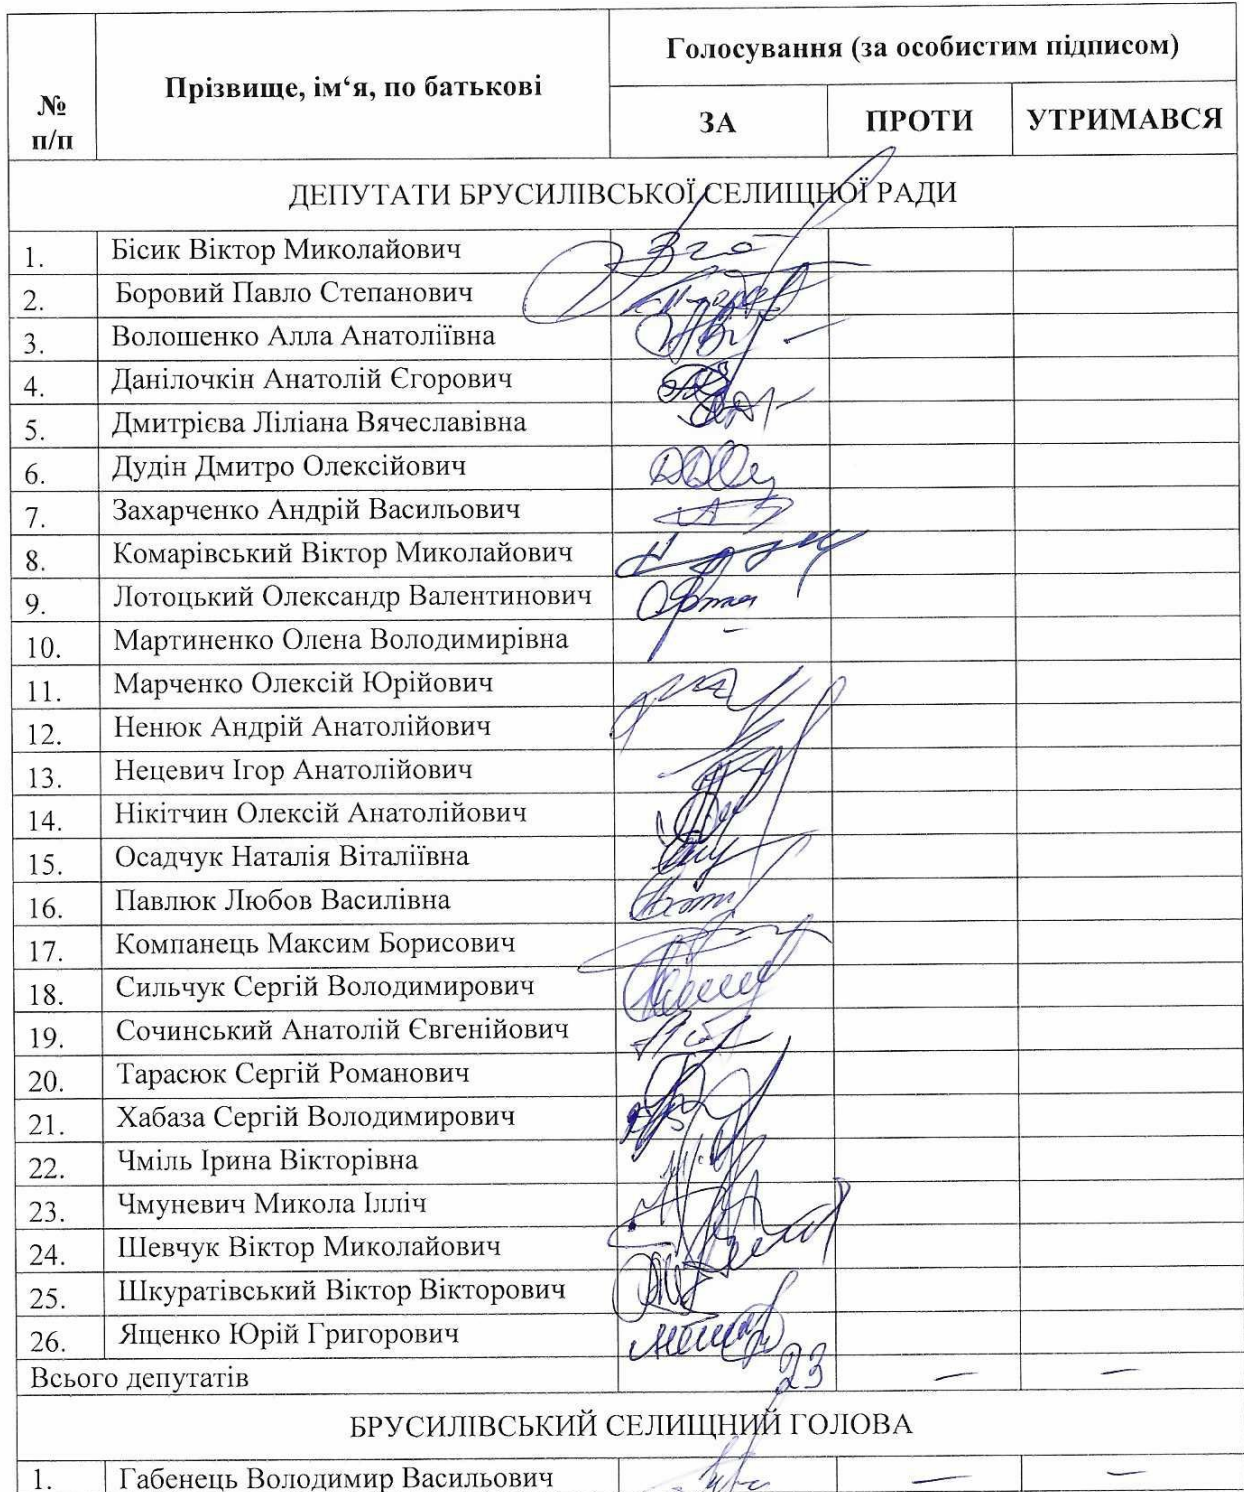 № п/п Прізвище, ім‘я, по батькові Голосування (за особистим підписом)
ЗА ПРОТИ УТРИМАВСЯ
ДЕПУТАТИ БРУСИЛІВСЬКОЇ СЕЛИЩНОЇ РАДИ
1. Бісик Віктор Миколайович
2. Боровий Павло Степанович
3. Волошенко Алла Анатоліївна
4. Данілочкін Анатолій Єгорович
5. Дмитрієва Ліліана Вячеславівна
6. Дудін Дмитро Олексійович
7. Захарченко Андрій Васильович
8. Комарівський Віктор Миколайович
9. Лотоцький Олександр Валентинович
10. Мартиненко Олена Володимирівна –
11. Марченко Олексій Юрійович
12. Ненюк Андрій Анатолійович
13. Нецевич Ігор Анатолійович
14. Нікітчин Олексій Анатолійович
15. Осадчук Наталія Віталіївна
16. Павлюк Любов Василівна
17. Компанець Максим Борисович
18. Сильчук Сергій Володимирович
19. Сочинський Анатолій Євгенійович
20. Тарасюк Сергій Романович
21. Хабаза Сергій Володимирович
22. Чміль Ірина Вікторівна
23. Чмуневич Микола Ілліч
24. Шевчук Віктор Миколайович
25. Шкуратівський Віктор Вікторович
26. Ященко Юрій Григорович
Всього депутатів 23 — —
БРУСИЛІВСЬКИЙ СЕЛИЩНИЙ ГОЛОВА
1. Габенець Володимир Васильович — —